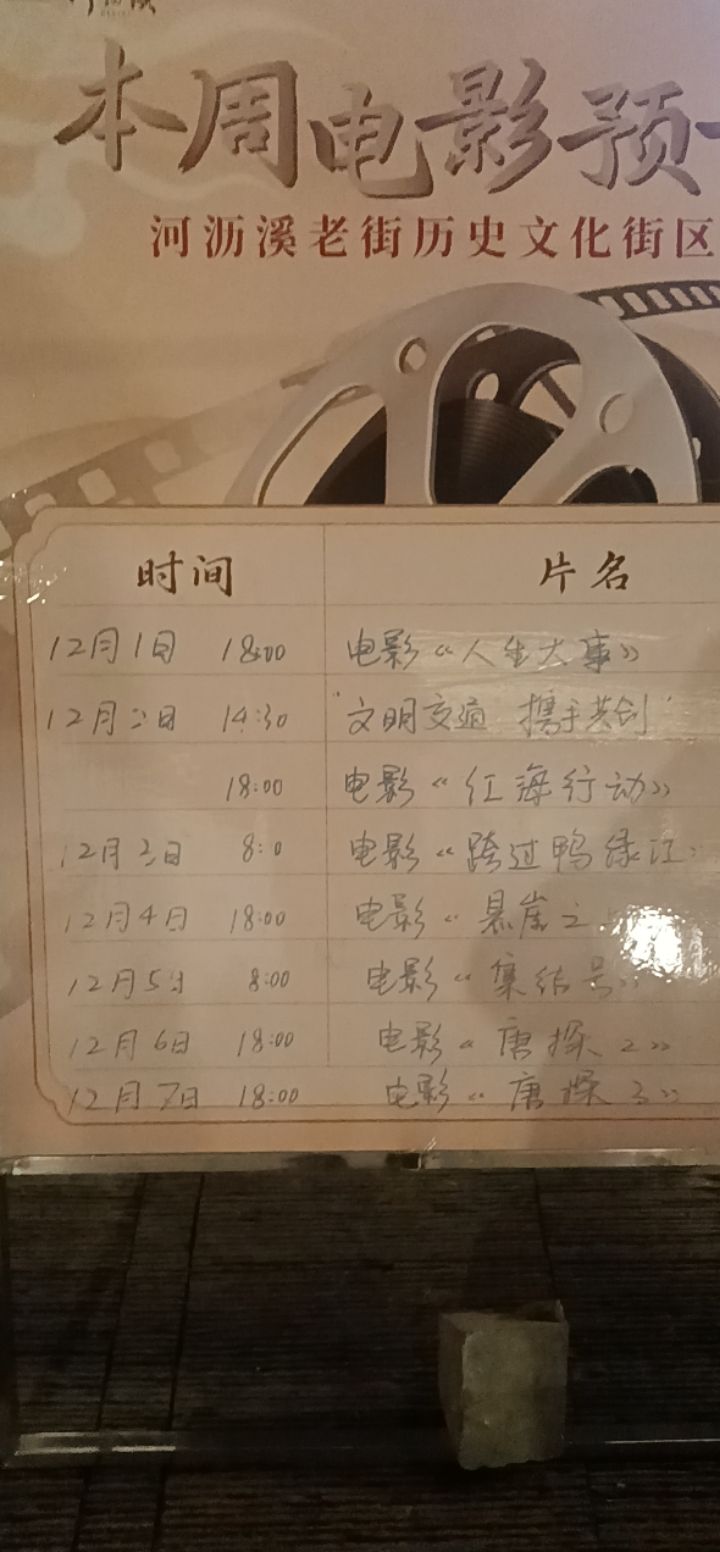 本周电影预
河沥溪老街历史文化街区
时间 片名
12月1日 18:00 电影《人生大事》
12月2日 14:30 "文明交通 携手共创"
18:00 电影《红海行动》
12月3日 8:0 电影《跨过鸭绿江》
12月4日 18:00 电影《悬崖之
12月5日 8:00 电影《集结号》
12月6日 18:00 电影《唐探2》
12月7日 18:00 电影《唐探3》